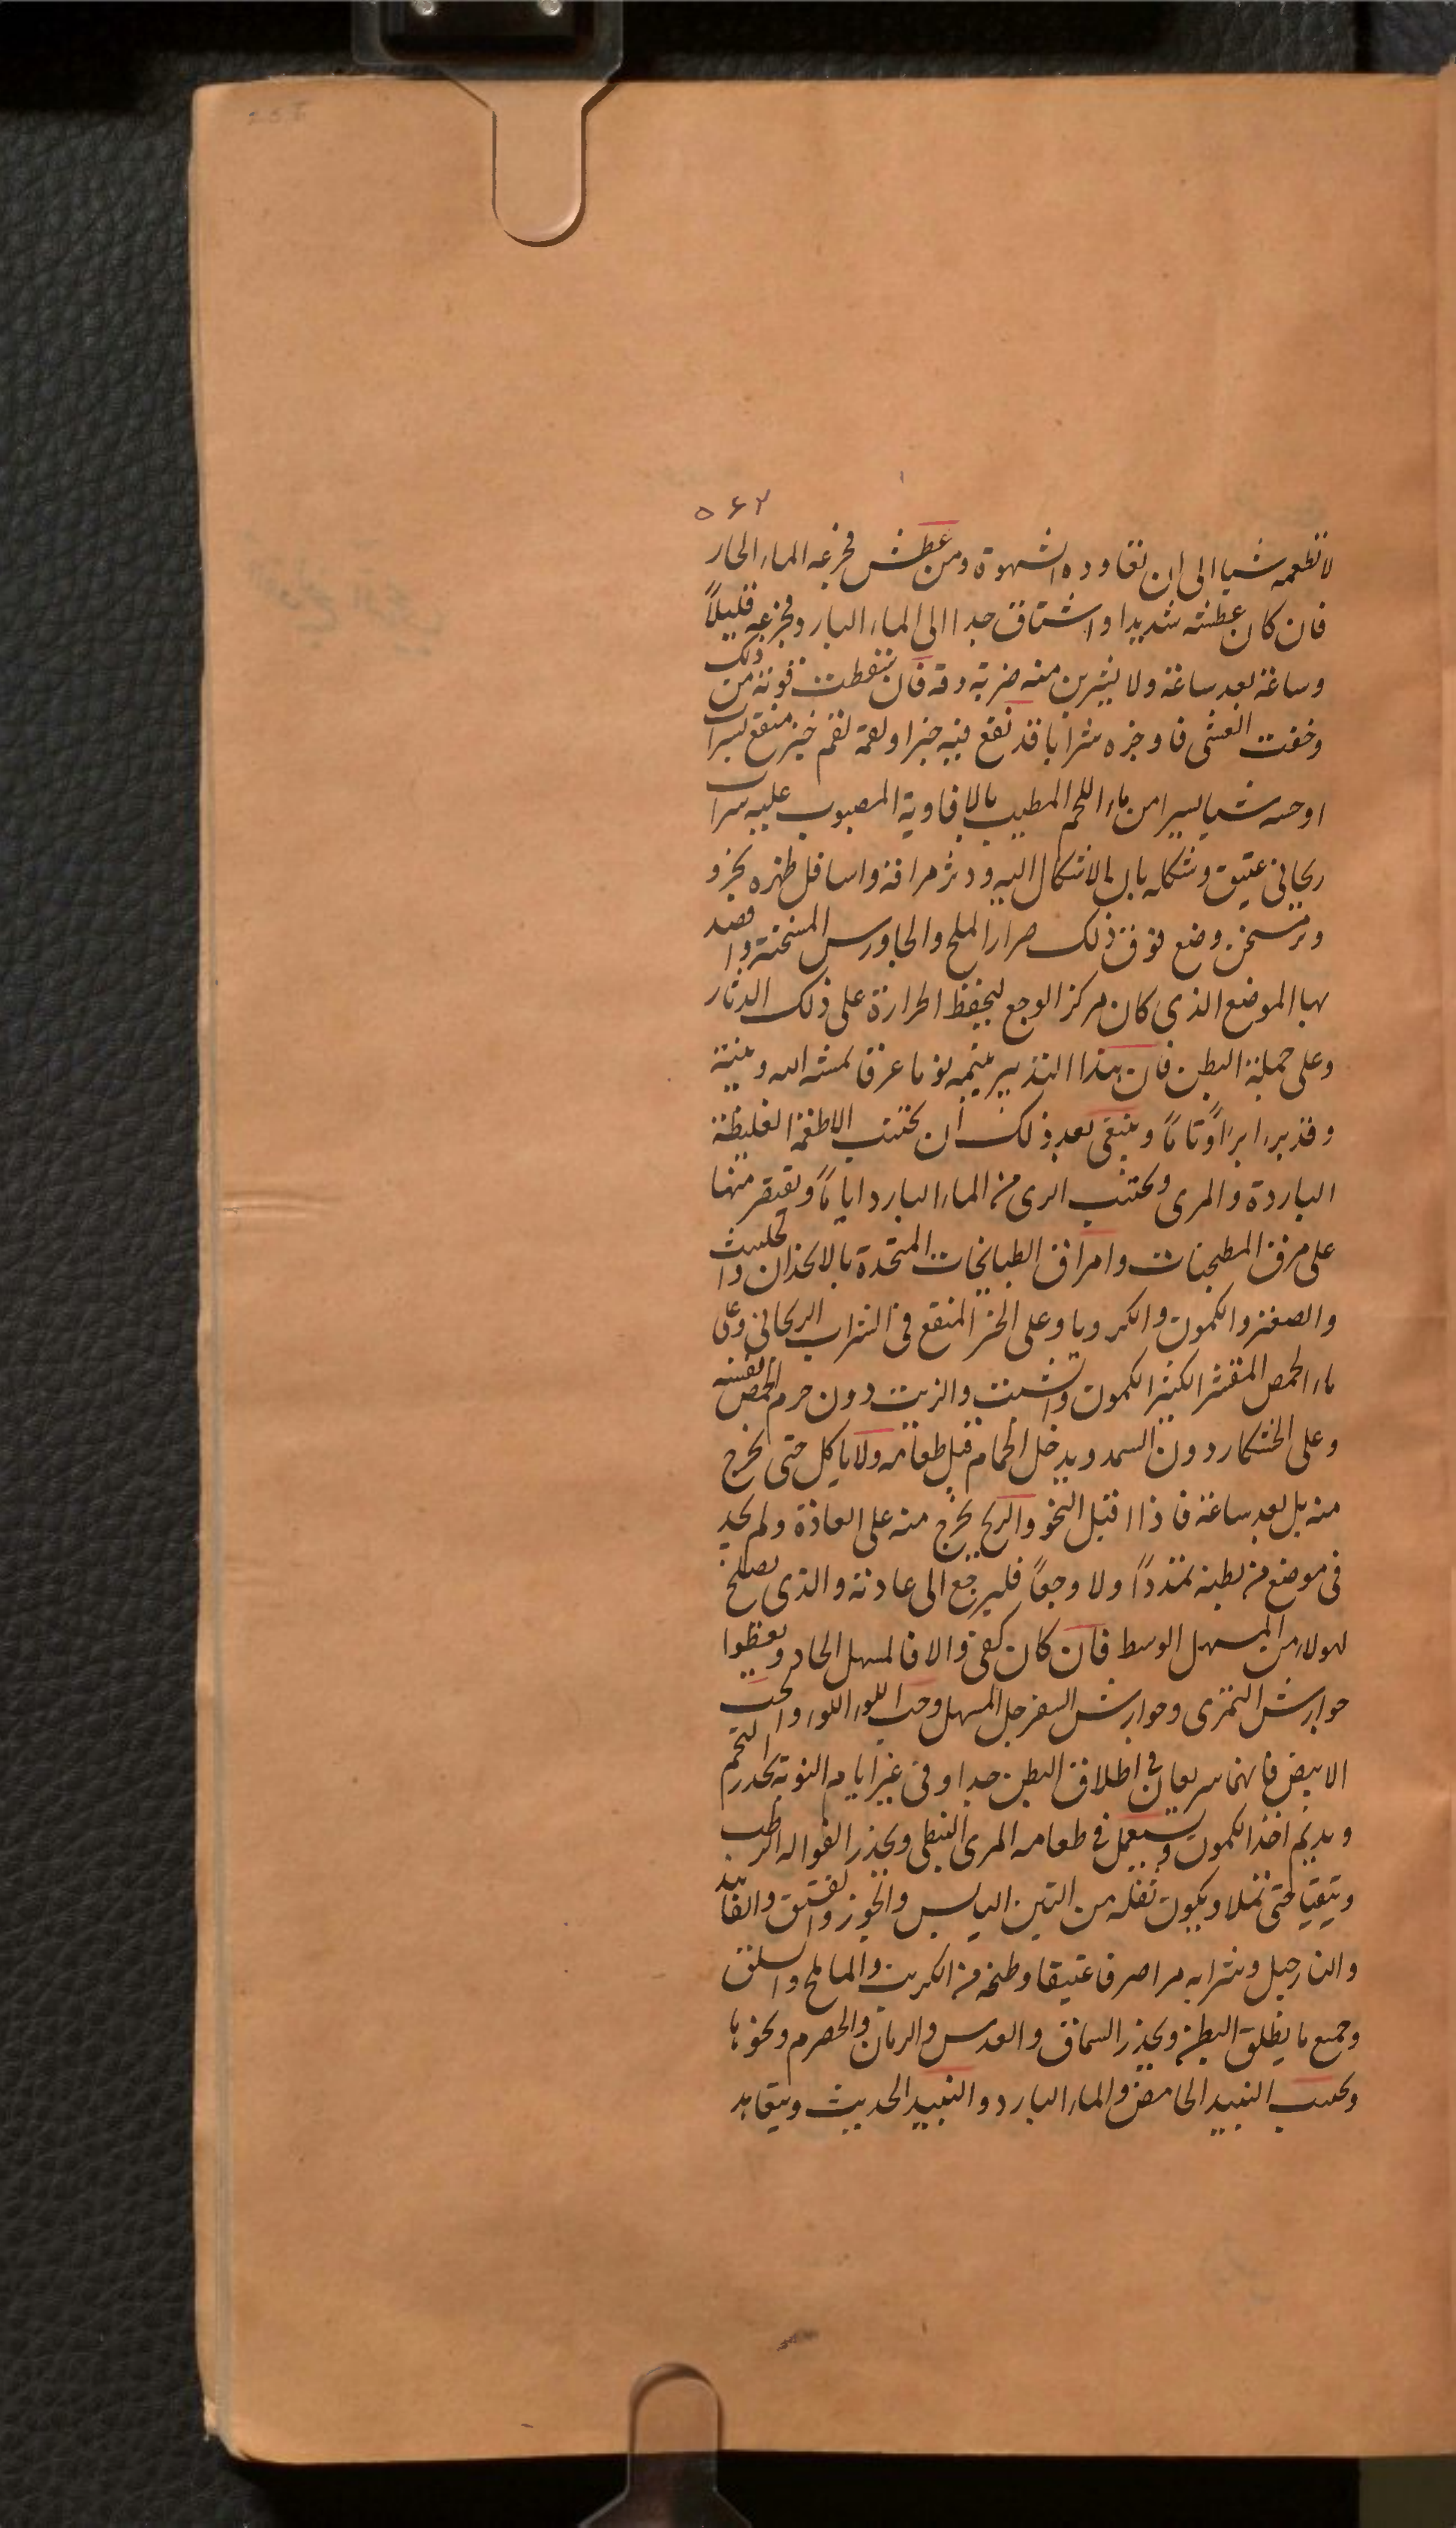 ۵۶۲
لا تطعمه شيا الى ان تعاوده الشهوة ومن عطش فجرعه الماء الحار
فان كان عطشه شديدا واشتاق جدا الى الماء البارد فجرعه قليلاً
وساعة بعد ساعة ولا يشربن منه ضربة دفه فان سقطت قوته من ذلك
وخفت الغشى فاوجره شرابا قد نقع فيه خبزا ولقمه لقم خبز منقع بشراب
او حسه شيا يسيرا من ماء اللحم المطيب بالافاوية المصبوب عليه شراب
ريحانى عتيق وشكله بال الاشكال اليه ودثر مراقه واسافل ظهره بخز و
وبر سخن وضع فوق ذلك صرار الملح والجاورس المسخنة واقصد
بها الموضع الذى كان مركز الوجع ليحفظ الحرارة على ذلك الدثار
وعلى جملة البطن فان هذا التدبير ينيمه نوما غرقا لمشه الله وينبه
وقد برا براًوتاماً وينبغى بعد ذلك أن يجتنب الاطعمة الغليظة
الباردة والمرى ويجتنب الرى من الماء البارد اياماً ويقتصر منها
على مرق المطجنات وامراق الطباخات المتخذة بالانجذان والحلتيت
والصعتر والكمون والكرويا وعلى الخبز المنقع فى الشراب الريحانى وعلى
ماء الحمص المقشر الكثير الكمون والشبت والزيت دون جرم الحمص نفسه
وعلى الخشكار دون السمد ويدخل الحمام قبل طعامه ولا ياكل حتى يخرج
منه بل بعد ساعة فاذا اقبل النحو والريح يخرج منه على العادة ولم يجد
فى موضع من بطنه تمدداً ولا وجعاً فليرجع الى عادته والذى يصلح
لهولاء من المسهل الوسط فان كان كفى والا فالمسهل الحاد ويعطوا
جوارش التمرى وجوارش السفرجل المسهل وحب اللوز اللوز والحب
الابيض فانهما سريعان فى اطلاق البطن جدا وفى غير ايام النوبة يحذر التخم
ويديم اخذ الكمون ويستعمل فى طعامه المرى النبطى ويحذر الفواكه الرطب
ويتقيا حتى تملا ويكون نقله من التين اليابس والجوز والفستق والفانيد
والنارجيل وشرابه مرا صرفا عتيقا وطبخه من الكرنب والمالح والسلق
وجميع ما يطلق البطن ويحذر السماق والعدس والرمان والحصرم ونحوها
ويجتنب النبيد الحامض والماء البارد والنبيد الحديث ويتعاهد